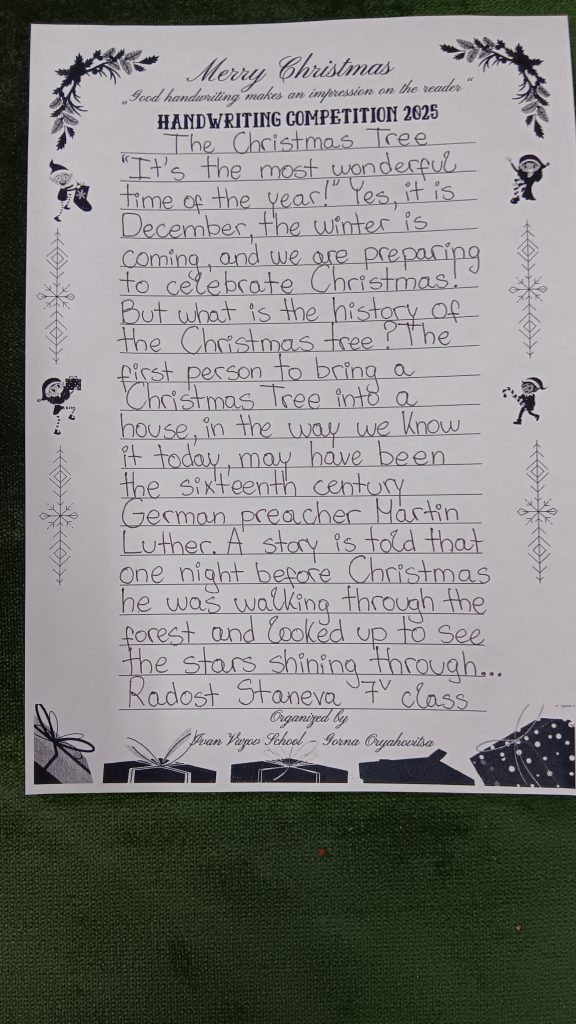 Merry Christmas
„Good handwriting makes an impression on the reader“
HANDWRITING COMPETITION 2025
The Christmas Tree
"It's the most wonderful
time of the year!" Yes, it is
December, the winter is
coming, and we are preparing
to celebrate Christmas.
But what is the history of
the Christmas tree? The
first person to bring a
Christmas Tree into a
house, in the way we know
it today, may have been
the sixteenth century
German preacher Martin
Luther. A story is told that
one night before Christmas
he was walking through the
forest and looked up to see
the stars shining through...
Radost Staneva 7v class
Organized by
Ivan Vazov School – Gorna Oryahovitsa